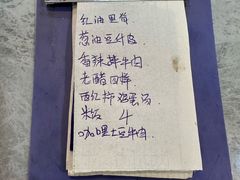 红油里脊
葱油豆付皮
香辣拌牛肉
老醋四拌
西红柿鸡蛋汤
米饭 4
咖喱土豆牛肉